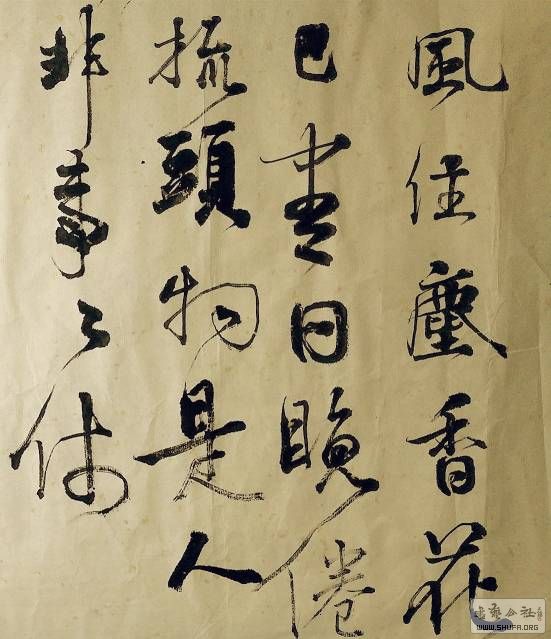 風住塵香花
已盡日晚倦
梳頭物是人
非事々休
書藝公社
WWW.SHUFA.ORG